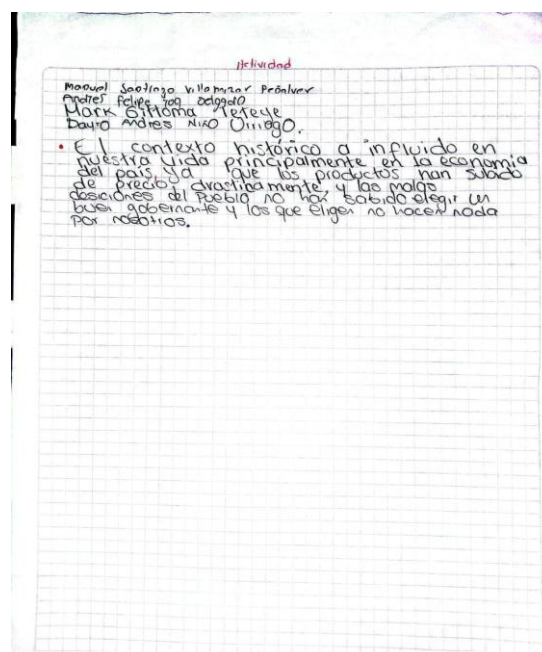 Actividad
Manuel Santiago Villamizar Peñalver
Andres Felipe Delgado
Mark Gittoma Teteye
Dayro Andres Niño
• El contexto histórico a influido en
nuestra vida principalmente en la economia
del pais, ya que los productos han subido
de precio drastinamente, y las malas
desiciones del Pueblo no han sabido elegir un
buen gobernante y los que eligen no hacen nada
por nosotros.